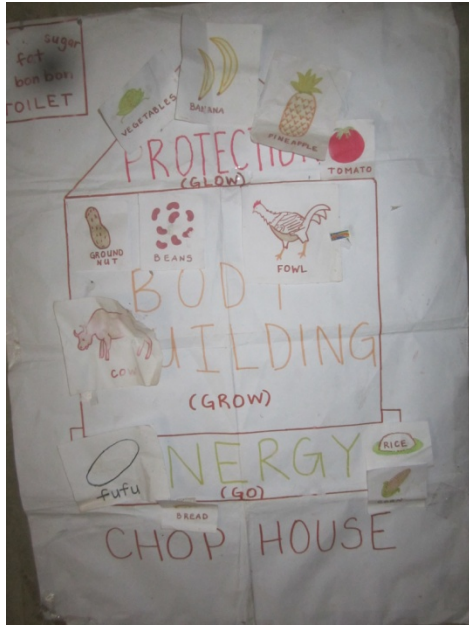 sugar
fat
bon bon
TOILET
VEGETABLES
BANANA
PINEAPPLE
TOMATO
PROTECTION
(GLOW)
GROUND
NUT
BEANS
FOWL
BODY
BUILDING
COW
(GROW)
fufu
ENERGY
RICE
(GO)
BREAD
CHOP HOUSE